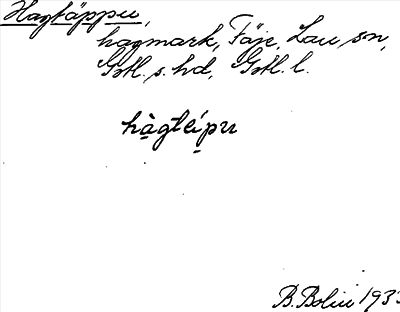 Hagtäppu,
hagmark, Fäje, Lau sn,
Gotl. s. hd, Gotl. l.
hàgtęípu
B. Bolin 193